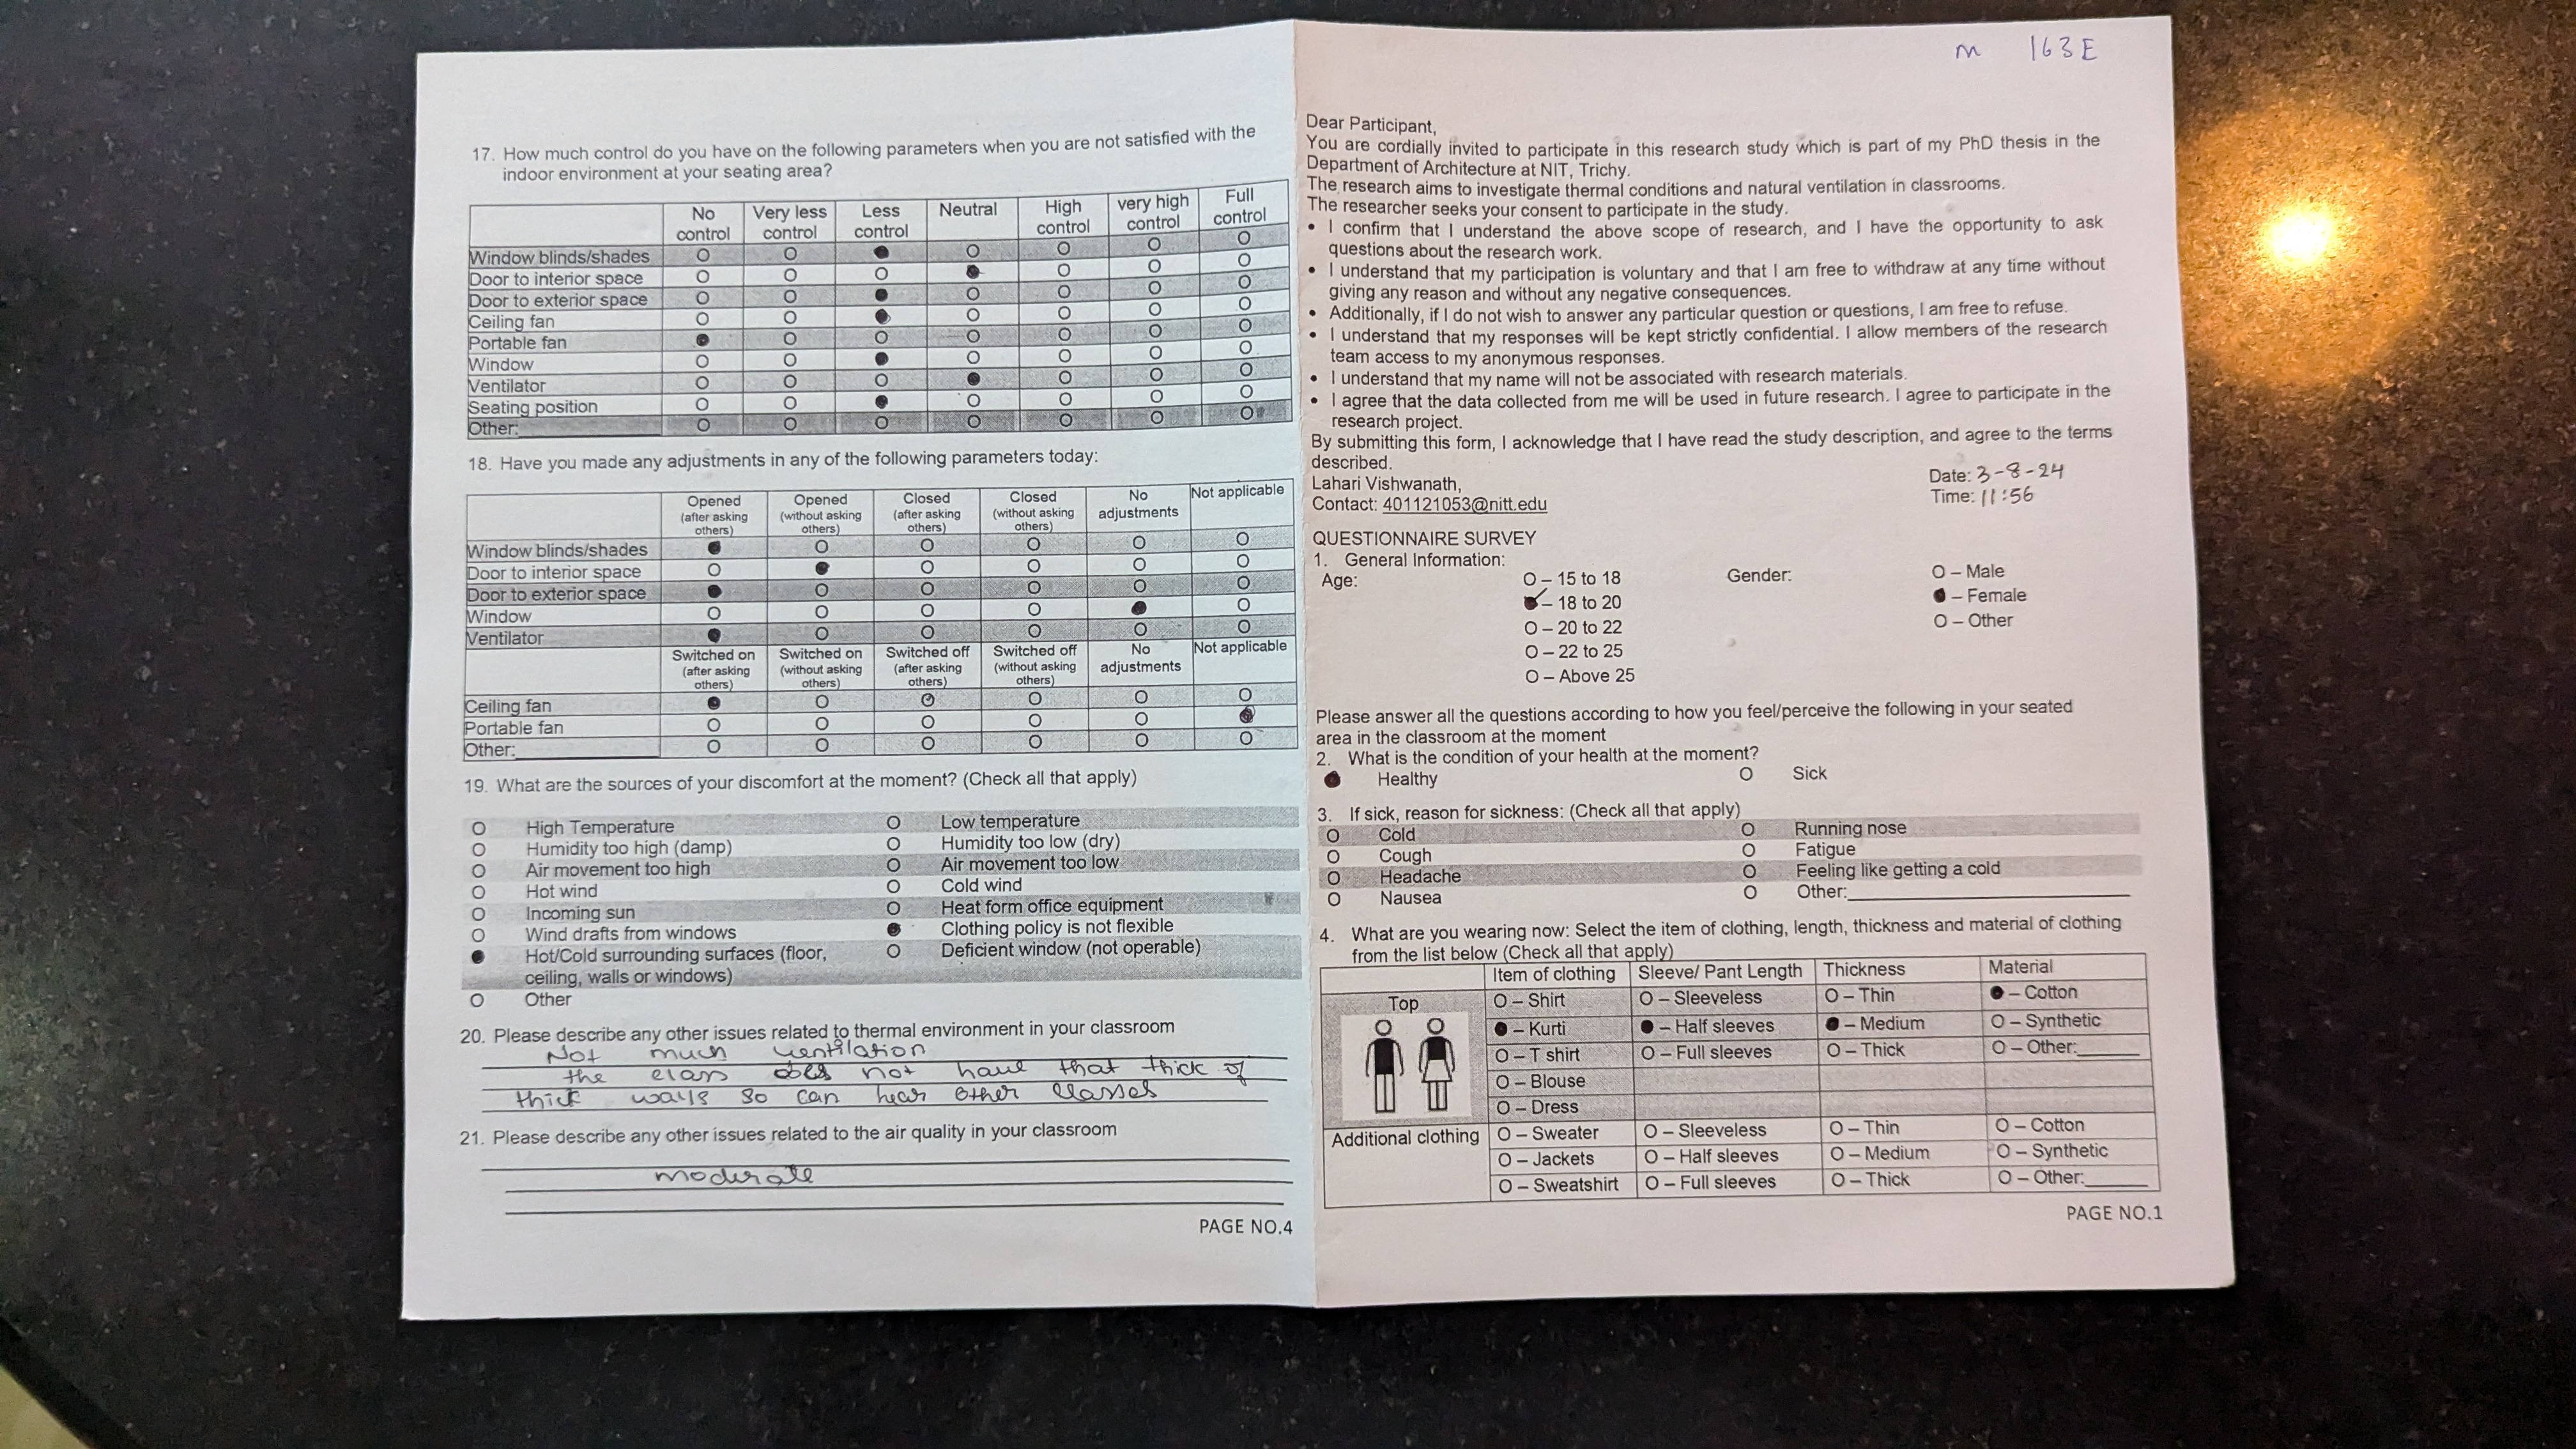 17. How much control do you have on the following parameters when you are not satisfied with the
indoor environment at your seating area?
No control Very less control Less control Neutral High control very high control Full control
Window blinds/shades O O ● O O O O
Door to interior space O O O ● O O O
Door to exterior space O O ● O O O O
Ceiling fan O O ● O O O O
Portable fan ● O O O O O O
Window O O ● O O O O
Ventilator O O O ● O O O
Seating position O O ● O O O O
Other: O O O O O O O
18. Have you made any adjustments in any of the following parameters today:
Opened (after asking others) Opened (without asking others) Closed (after asking others) Closed (without asking others) No adjustments Not applicable
Window blinds/shades ● O O O O O
Door to interior space O ● O O O O
Door to exterior space ● O O O O O
Window O O O O ● O
Ventilator ● O O O O O
Switched on (after asking others) Switched on (without asking others) Switched off (after asking others) Switched off (without asking others) No adjustments Not applicable
Ceiling fan ● O O O O O
Portable fan O O O O O ●
Other: O O O O O O
19. What are the sources of your discomfort at the moment? (Check all that apply)
O High Temperature O Low temperature
O Humidity too high (damp) O Humidity too low (dry)
O Air movement too high O Air movement too low
O Hot wind O Cold wind
O Incoming sun O Heat form office equipment
O Wind drafts from windows ● Clothing policy is not flexible
● Hot/Cold surrounding surfaces (floor, O Deficient window (not operable)
ceiling, walls or windows)
O Other
20. Please describe any other issues related to thermal environment in your classroom
Not much ventilation
the class does not have that thick of
thick walls so can hear other classes
21. Please describe any other issues related to the air quality in your classroom
moderate
PAGE NO.4
m 163E
Dear Participant,
You are cordially invited to participate in this research study which is part of my PhD thesis in the
Department of Architecture at NIT, Trichy.
The research aims to investigate thermal conditions and natural ventilation in classrooms.
The researcher seeks your consent to participate in the study.
• I confirm that I understand the above scope of research, and I have the opportunity to ask
questions about the research work.
• I understand that my participation is voluntary and that I am free to withdraw at any time without
giving any reason and without any negative consequences.
• Additionally, if I do not wish to answer any particular question or questions, I am free to refuse.
• I understand that my responses will be kept strictly confidential. I allow members of the research
team access to my anonymous responses.
• I understand that my name will not be associated with research materials.
• I agree that the data collected from me will be used in future research. I agree to participate in the
research project.
By submitting this form, I acknowledge that I have read the study description, and agree to the terms
described.
Lahari Vishwanath,
Contact: 401121053@nitt.edu
Date: 3-8-24
Time: 11:56
QUESTIONNAIRE SURVEY
1. General Information:
Age: O – 15 to 18 Gender: O – Male
● – 18 to 20 ● – Female
O – 20 to 22 O – Other
O – 22 to 25
O – Above 25
Please answer all the questions according to how you feel/perceive the following in your seated
area in the classroom at the moment
2. What is the condition of your health at the moment?
● Healthy O Sick
3. If sick, reason for sickness: (Check all that apply)
O Cold O Running nose
O Cough O Fatigue
O Headache O Feeling like getting a cold
O Nausea O Other:
4. What are you wearing now: Select the item of clothing, length, thickness and material of clothing
from the list below (Check all that apply)
Item of clothing Sleeve/ Pant Length Thickness Material
Top O – Shirt O – Sleeveless O – Thin ● – Cotton
● – Kurti ● – Half sleeves ● – Medium O – Synthetic
O – T shirt O – Full sleeves O – Thick O – Other:
O – Blouse
O – Dress
Additional clothing O – Sweater O – Sleeveless O – Thin O – Cotton
O – Jackets O – Half sleeves O – Medium O – Synthetic
O – Sweatshirt O – Full sleeves O – Thick O – Other:
PAGE NO.1